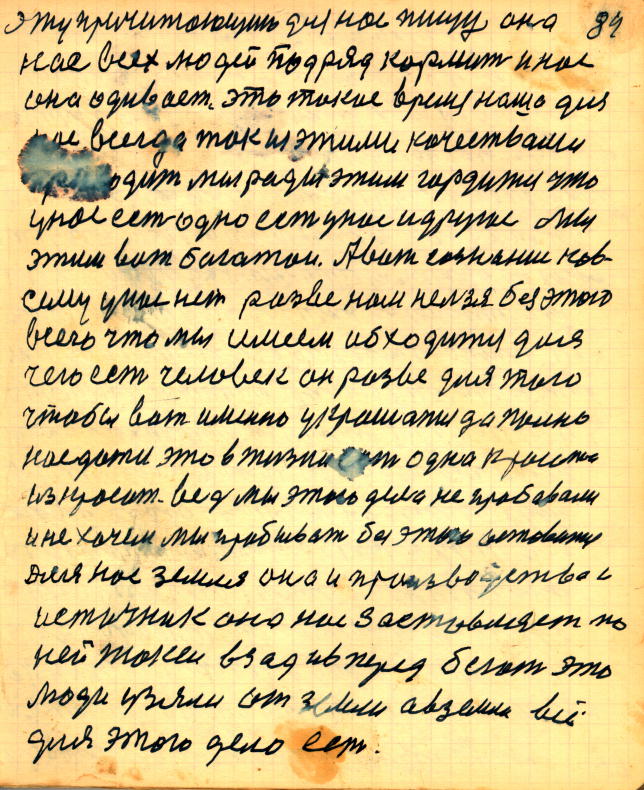 эту причитающуюсь для нас пищу она 84
нас всех людей подряд кормит и нас
она одивает. это такое время наша для
нас всегда так и этими качествами
дит мы ради этим гордитси что
у нас ест одно ест у нас и другое мы
этим вот багатои. А вот сознание ков
сему у нас нет разве нам нелзя без этого
всего что мы имеем обходитси для
чего ест человек он разве для того
чтобы вот именно украшатси да полно
наедатси это в жизни одна красота
из красот. вед мы этого дела не пробавали
и не хочем мы пробыват без этого оставатси
Для нас земля она и производства и
источник она нас заставляет по
ней таки взад и вперед бегат это
люди узяли от земли а в земли всё
для этого дело ест.